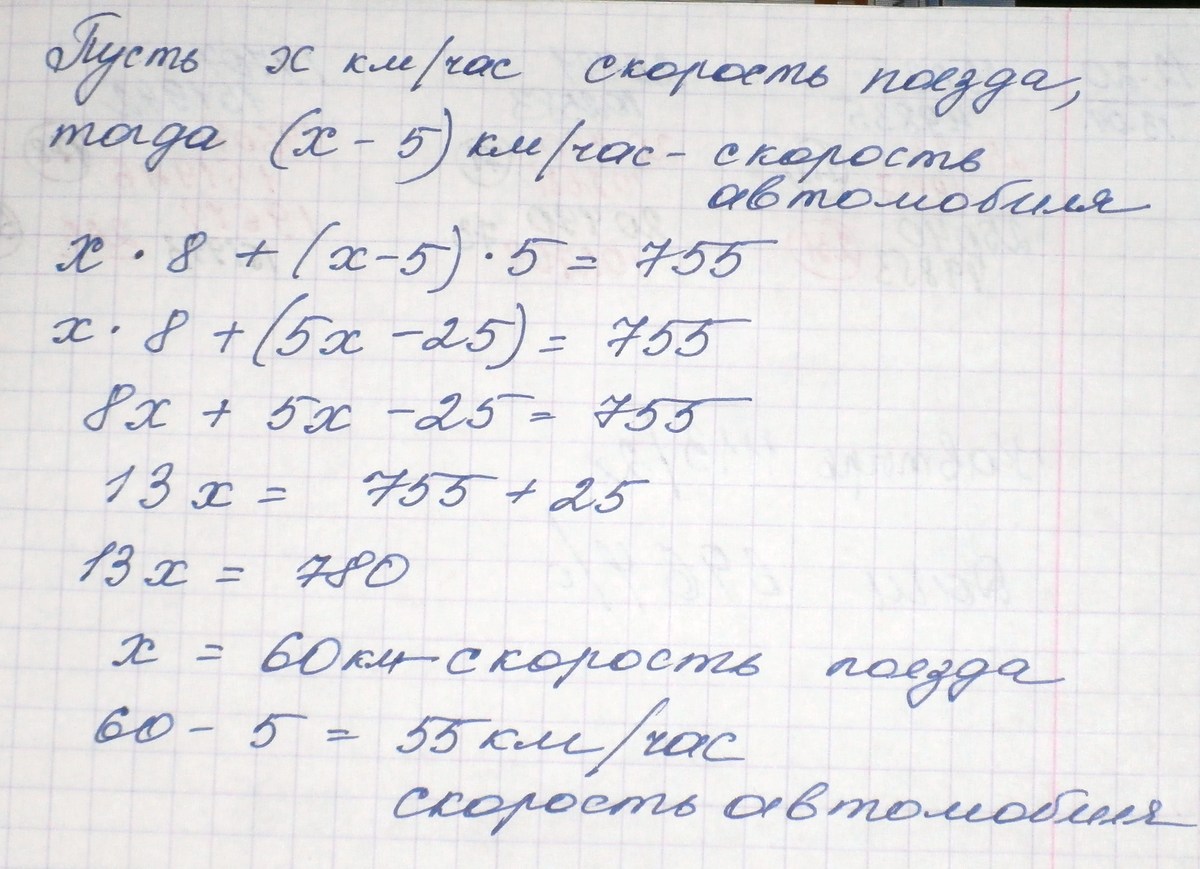 Пусть x км/час скорость поезда,
тогда (x - 5) км/час - скорость
автомобиля
x · 8 + (x - 5) · 5 = 755
x · 8 + (5x - 25) = 755
8x + 5x - 25 = 755
13x = 755 + 25
13x = 780
x = 60 км - скорость поезда
60 - 5 = 55 км/час
скорость автомобиля